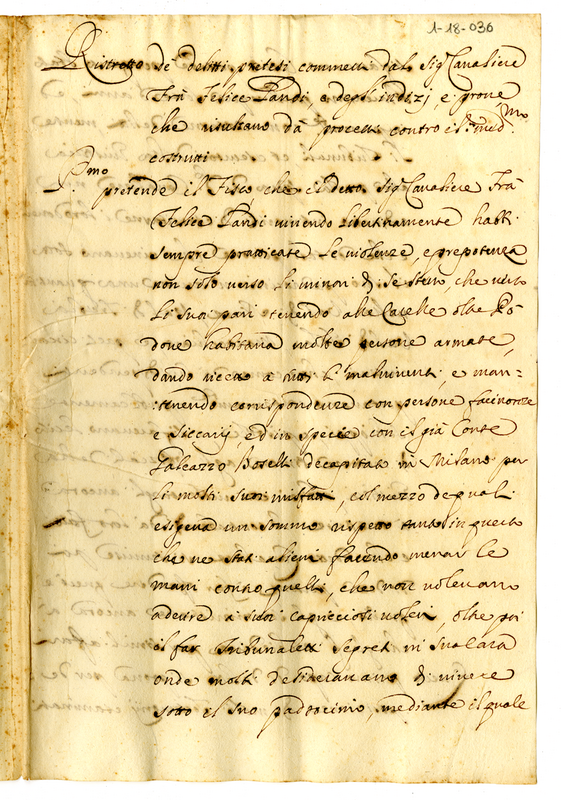 1-18-036
Ristretto de delitti pretesi commessi dal Sig.r Cavaliere
Frà Felice Landi, e degl'indizj, e prove
che risultano dà processi contro il med.mo
costrutti
P.mo pretende il Fisco, che il detto Sig.r Cavaliere Frà
Felice Landi vivendo libertinamente habbi
sempre pratticate le violenze, e prepotenze
non solo verso li minori di se stesso, che verso
li suoi pari tenendo alle Caselle oltre Pò
dove habitava molte persone armate,
dando ricetto a tutti li malviventi, e man=
=tenendo corrispondenze con persone facinorose
e siccarij ed in specie con il già Conte
Galeazzo Boselli decapitato in Milano per
li molti suoi misfatti, col mezzo de quali
esigeva un sommo rispetto tanto in questo
che ne stati alieni facendo menar le
mani contro quelli, che non volevano
aderire a suoi capricciosi voleri, oltre poi
il far Tribunaletti segreti in sua casa
onde molti desideravano di vivere
sotto il suo padrocinio, mediante il quale